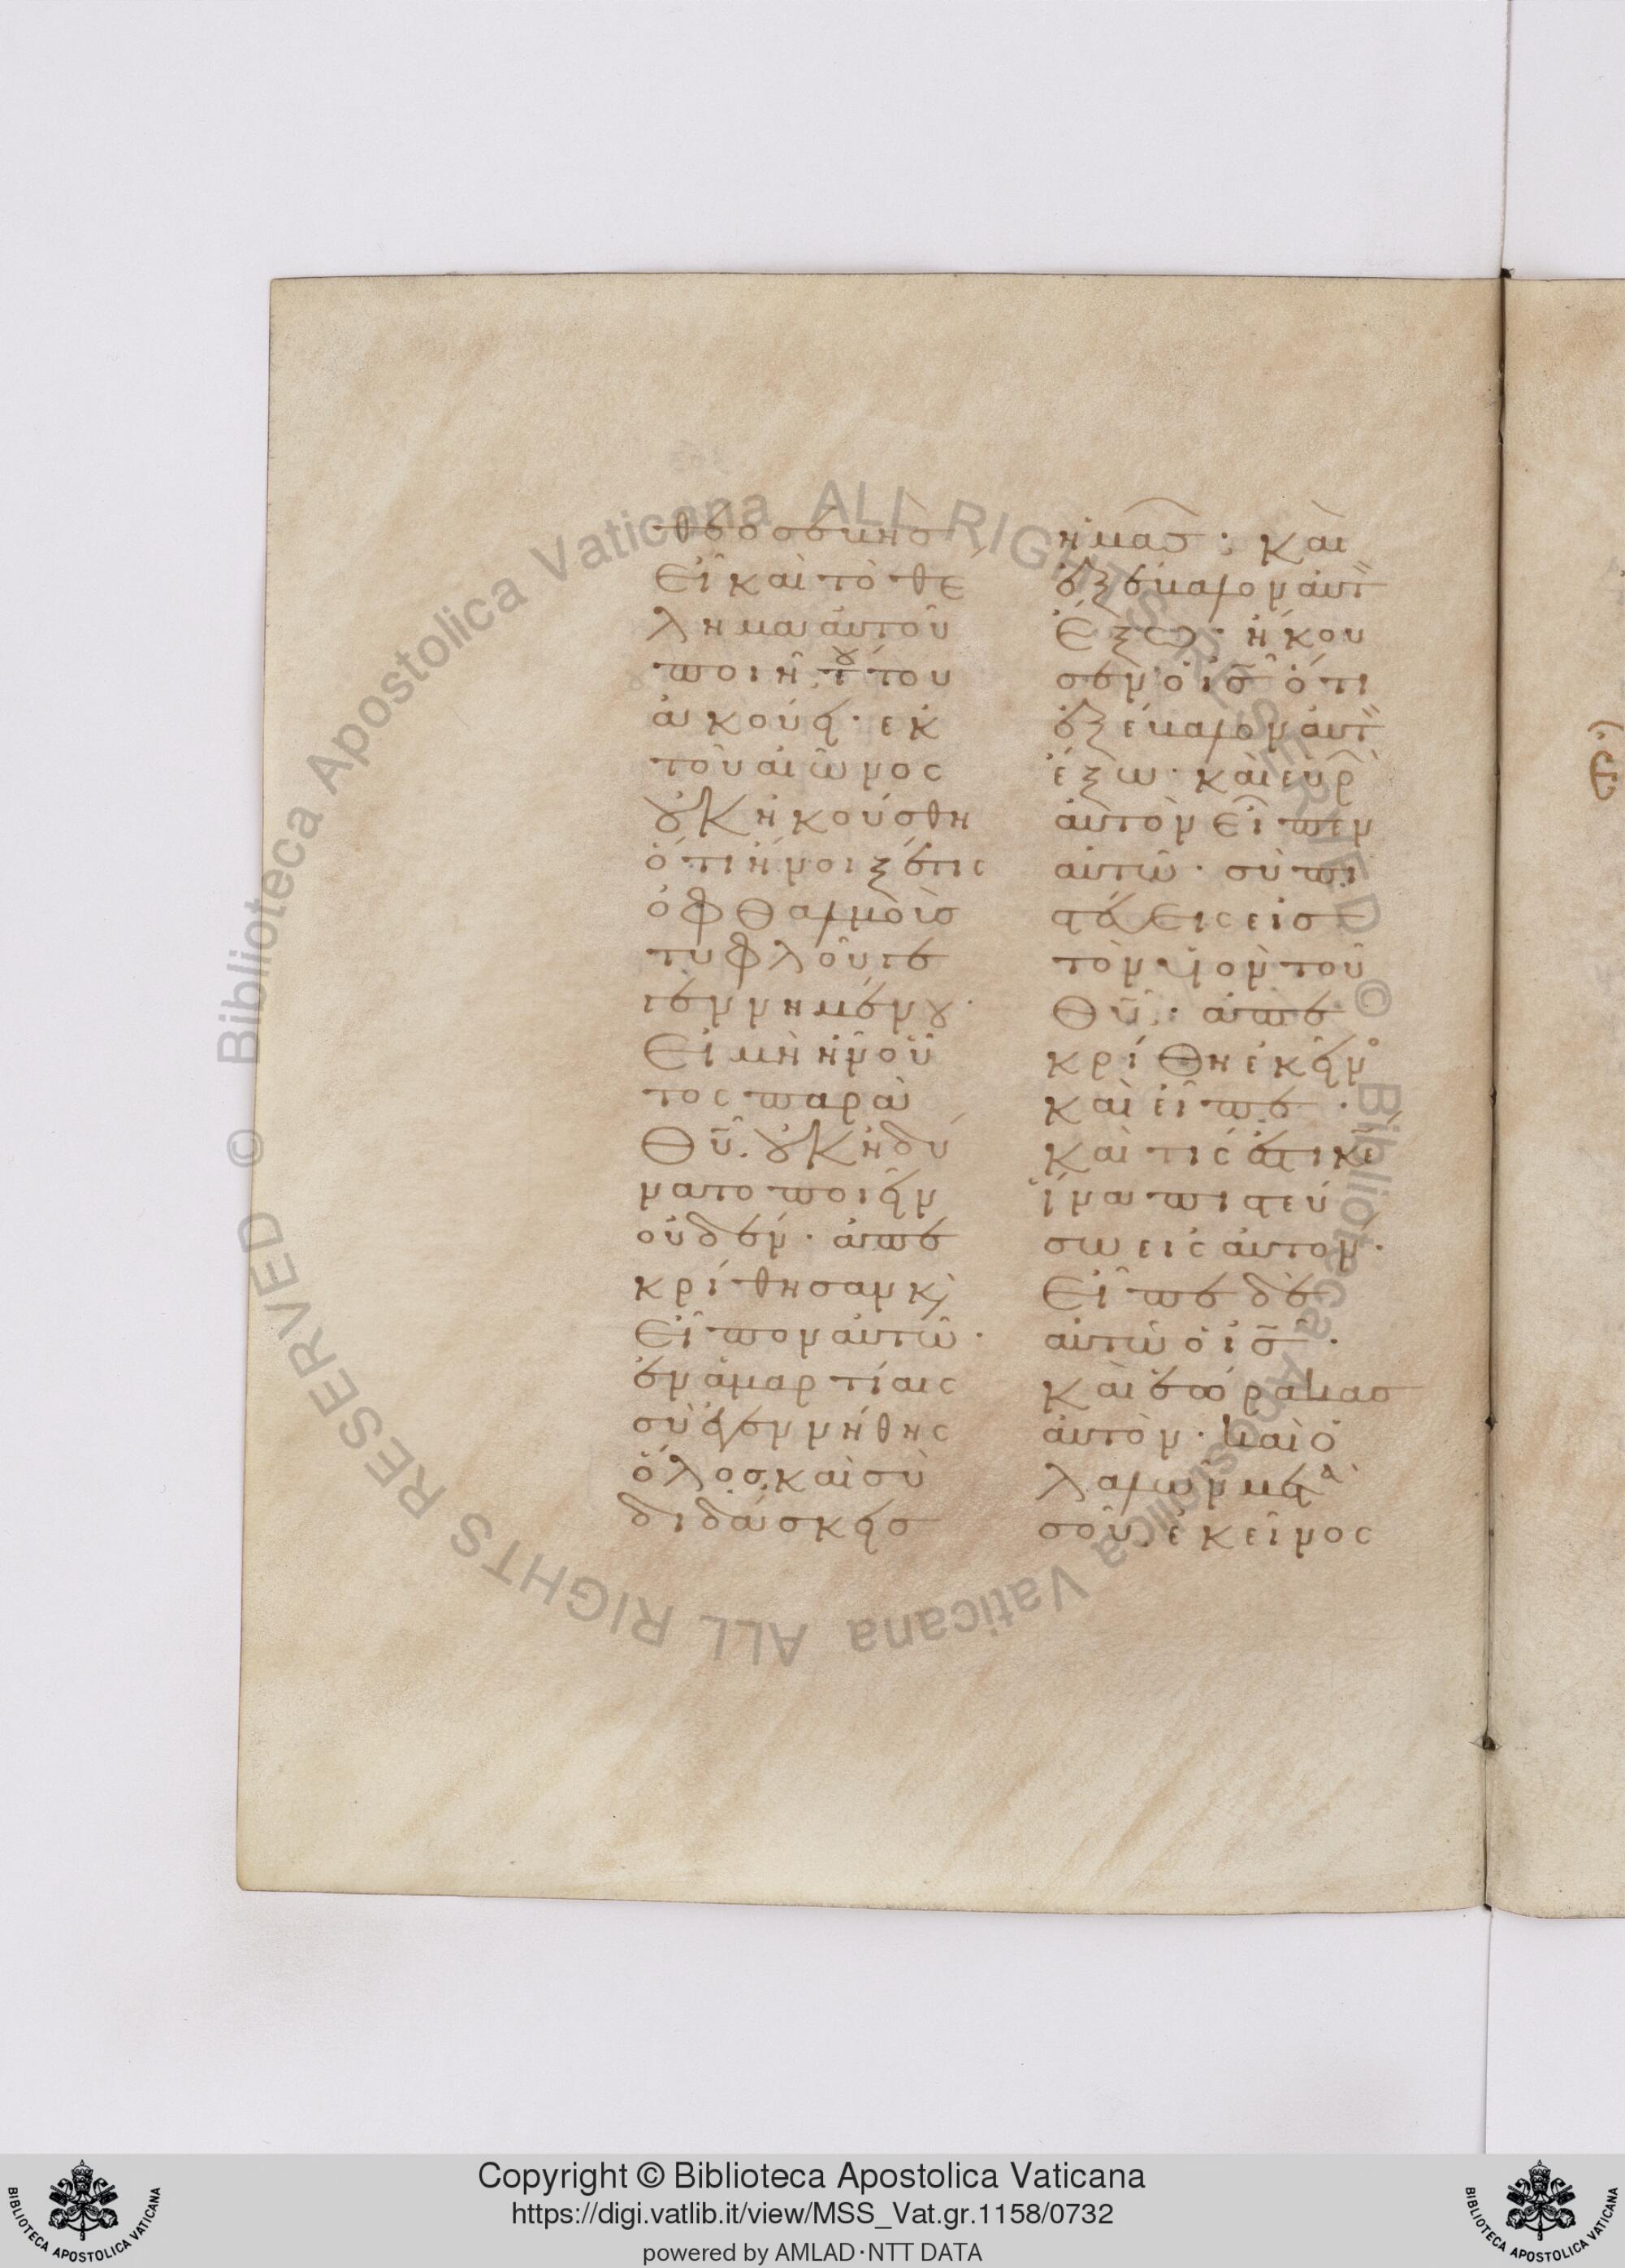 θεοσεβὴσ
εῖ καὶ τὸ θέ
λημα αὐτοῦ
ποιῆ, τούτου
ἀκούει· ἐκ
τοῦ αἰῶνος
οὐκ ἠκούσθη
ὅτι ἤνοιξέ τις
ὀφθαλμοὺσ
τυφλοῦ γε
γεννημένου·
εἰ μὴ ἦν οὗ
τος παρὰ
θῦ. οὐκ ἠδύ
νατο ποιεῖν
οὐδέν· ἀπε
κρίθησαν κὶ
εἶπον αὐτῶ·
ἐν ἁμαρτίαις
σὺ ἐγεννήθης
ὅλοσ, καὶ σὺ
διδάσκεισ
ἡμᾶσ; καὶ
ἐξέβαλον αὐτ
ἔξω· ἤκου
σεν ὁ ισ ὅτι
ἐξέβαλον αὐτ
ἔξω· καὶ εὑρ
αὐτὸν εἶπεν
αὐτῶ· σὺ πι
στεύεις εἰσ
τὸν υἱὸν τοῦ
θῦ; ἀπε
κρίθη ἐκεῖνο
καὶ εἶπε·
καὶ τίς ἐστι κε
ἵνα πιστεύ
σω εἰς αὐτον·
εἶπε δὲ
αὐτῶ ὁ ισ·
καὶ ἑώρακασ
αὐτὸν· καὶ ὁ
λαλῶν μετὰ
σοῦ, ἐκεῖνος
Copyright © Biblioteca Apostolica Vaticana
https://digi.vatlib.it/view/MSS_Vat.gr.1158/0732
powered by AMLAD·NTT DATA